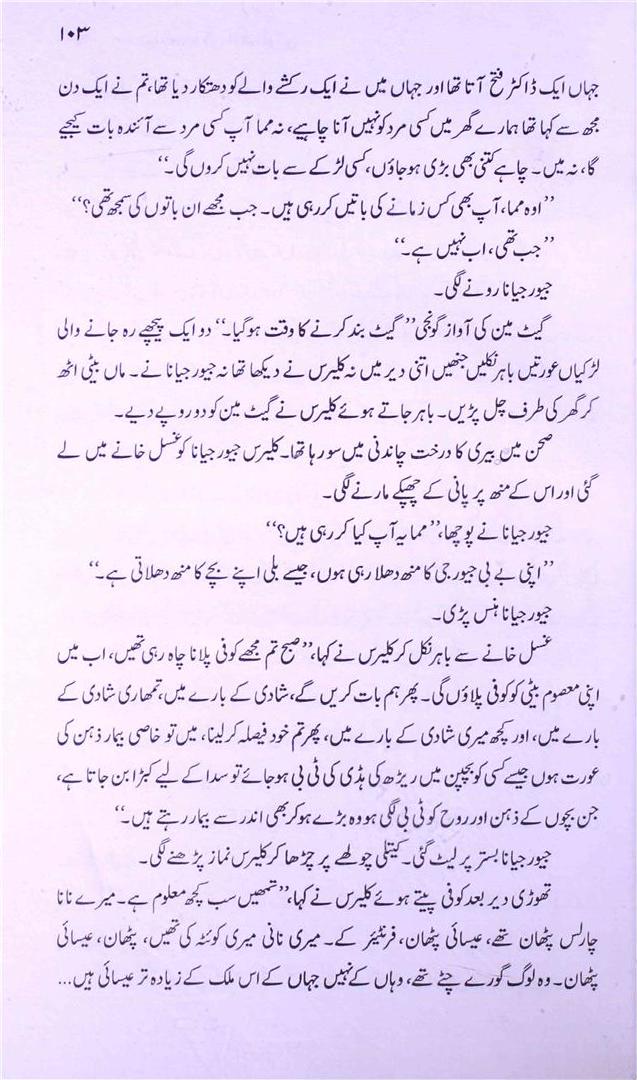 ۱۰۳
جہاں ایک ڈاکٹر فتح آتا تھا اور جہاں میں نے ایک رکشے والے کو دھتکار دیا تھا، تم نے ایک دن
مجھ سے کہا تھا ہمارے گھر میں کسی مرد کو نہیں آنا چاہیے، نہ مما آپ کسی مرد سے آئندہ بات کیجیے
گا، نہ میں۔ چاہے کتنی بھی بڑی ہو جاؤں، کسی لڑکے سے بات نہیں کروں گی۔‘‘
’’اوہ مما، آپ بھی کس زمانے کی باتیں کر رہی ہیں۔ جب مجھے ان باتوں کی سمجھ تھی؟‘‘
’’جب تھی، اب نہیں ہے۔‘‘
جیورجیانا رونے لگی۔
گیٹ مین کی آواز گونجی ’’گیٹ بند کرنے کا وقت ہو گیا۔‘‘ دو ایک پیچھے رہ جانے والی
لڑکیاں عورتیں باہر نکلیں جنھیں اتنی دیر میں نہ کلیرس نے دیکھا تھا نہ جیورجیانا نے۔ ماں بیٹی اٹھ
کر گھر کی طرف چل پڑیں۔ باہر جاتے ہوئے کلیرس نے گیٹ مین کو دو روپے دیے۔
صحن میں بیری کا درخت چاندنی میں سو رہا تھا۔ کلیرس جیورجیانا کو غسل خانے میں لے
گئی اور اس کے منھ پر پانی کے چھپکے مارنے لگی۔
جیورجیانا نے پوچھا، ’’مما یہ آپ کیا کر رہی ہیں؟‘‘
’’اپنی بے بی جیورجی کا منھ دھلا رہی ہوں، جیسے بلی اپنے بچے کا منھ دھلاتی ہے۔‘‘
جیورجیانا ہنس پڑی۔
غسل خانے سے باہر نکل کر کلیرس نے کہا، ’’صبح تم مجھے کوفی پلانا چاہ رہی تھیں، اب میں
اپنی معصوم بیٹی کو کوفی پلاؤں گی۔ پھر ہم بات کریں گے، شادی کے بارے میں، تمھاری شادی کے
بارے میں، اور کچھ میری شادی کے بارے میں، پھر تم خود فیصلہ کر لینا، میں تو خاصی بیمار ذہن کی
عورت ہوں جیسے کسی کو بچپن میں ریڑھ کی ہڈی کی ٹی بی ہو جائے تو سدا کے لیے کبڑا بن جاتا ہے،
جن بچوں کے ذہن اور روح کو ٹی بی لگی ہو وہ بڑے ہو کر بھی اندر سے بیمار رہتے ہیں۔‘‘
جیورجیانا بستر پر لیٹ گئی۔ کیتلی چولھے پر چڑھا کر کلیرس نماز پڑھنے لگی۔
تھوڑی دیر بعد کوفی پیتے ہوئے کلیرس نے کہا، ’’تمھیں سب کچھ معلوم ہے۔ میرے نانا
چارلس پٹھان تھے، عیسائی پٹھان، فرنٹیئر کے۔ میری نانی میری کوئٹہ کی تھیں، پٹھان، عیسائی
پٹھان۔ وہ لوگ گورے چٹے تھے، وہاں کے نہیں جہاں کے اس ملک کے زیادہ تر عیسائی ہیں...